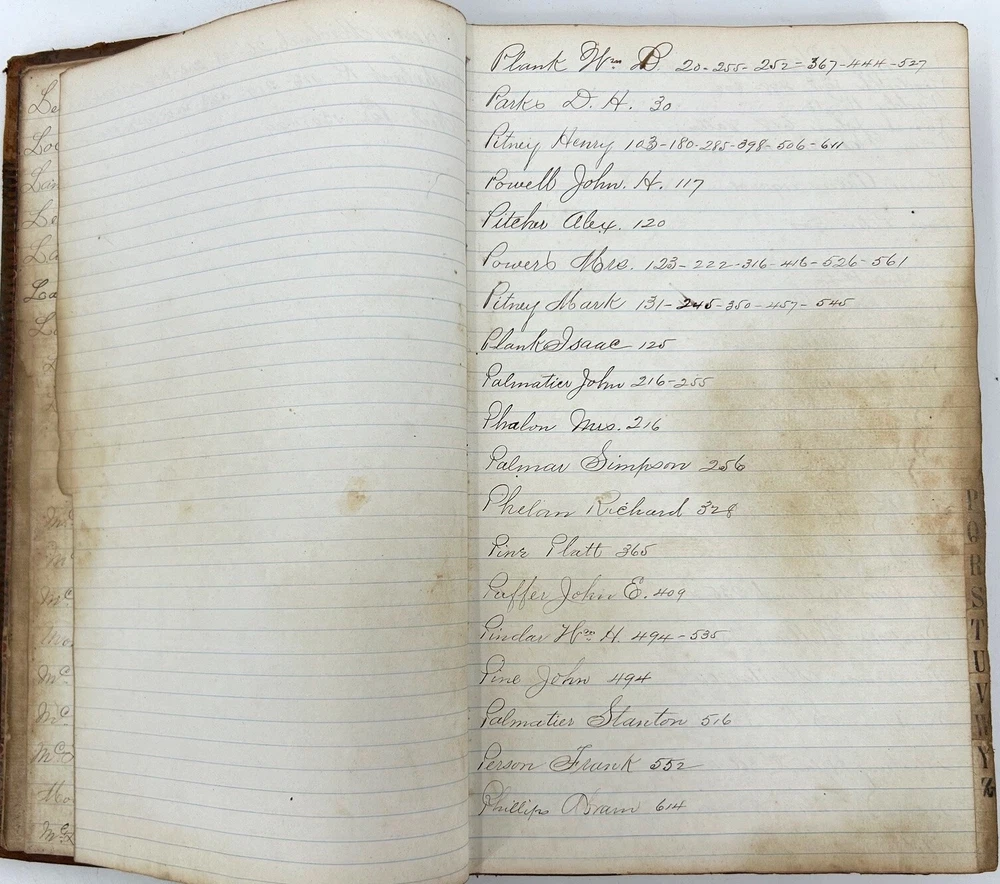 Le
Loc
Lan
Le
La
La
Lo
Mc
Mc
Mc
Mc
Mc
Mo
Mc
Plank Wm D. 20-255-252-367-444-527
Parks D. H. 30
Pitney Henry 103-180-285-398-506-611
Powell John. H. 117
Pitcher Alex. 120
Powers Mrs. 123-222-316-416-526-561
Pitney Mark 131-245-350-457-545
Plank Isaac 125
Palmatier John 216-255
Phalon Mrs. 216
Palmar Simpson 256
Phelan Richard 328
Pine Platt 365
Puffer John E. 409
Pindar Wm H. 494-535
Pine John 494
Palmatier Stanton 516
Person Frank 552
Phillips Abram 614
P
Q
R
S
T
U
V
W
Y
Z